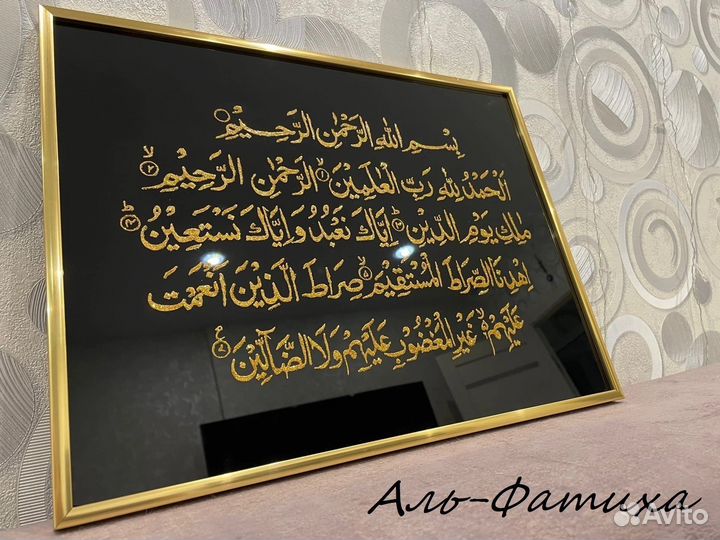 بِسْمِ اللهِ الرَّحْمٰنِ الرَّحِيْمِ
اَلْحَمْدُ لِلّٰهِ رَبِّ الْعٰلَمِيْنَ ۙ﴿۱﴾ الرَّحْمٰنِ الرَّحِيْمِ ۙ﴿۲﴾
مٰلِكِ يَوْمِ الدِّيْنِ ﴿۳﴾ اِيَّاكَ نَعْبُدُ وَاِيَّاكَ نَسْتَعِيْنُ ﴿۴﴾
اِهْدِنَا الصِّرَاطَ الْمُسْتَقِيْمَ ۙ﴿۵﴾ صِرَاطَ الَّذِيْنَ اَنْعَمْتَ
عَلَيْهِمْ ۙ۬ غَيْرِ الْمَغْضُوْبِ عَلَيْهِمْ وَلَا الضَّآلِّيْنَ ﴿۷﴾
Аль-Фатиха
Avito